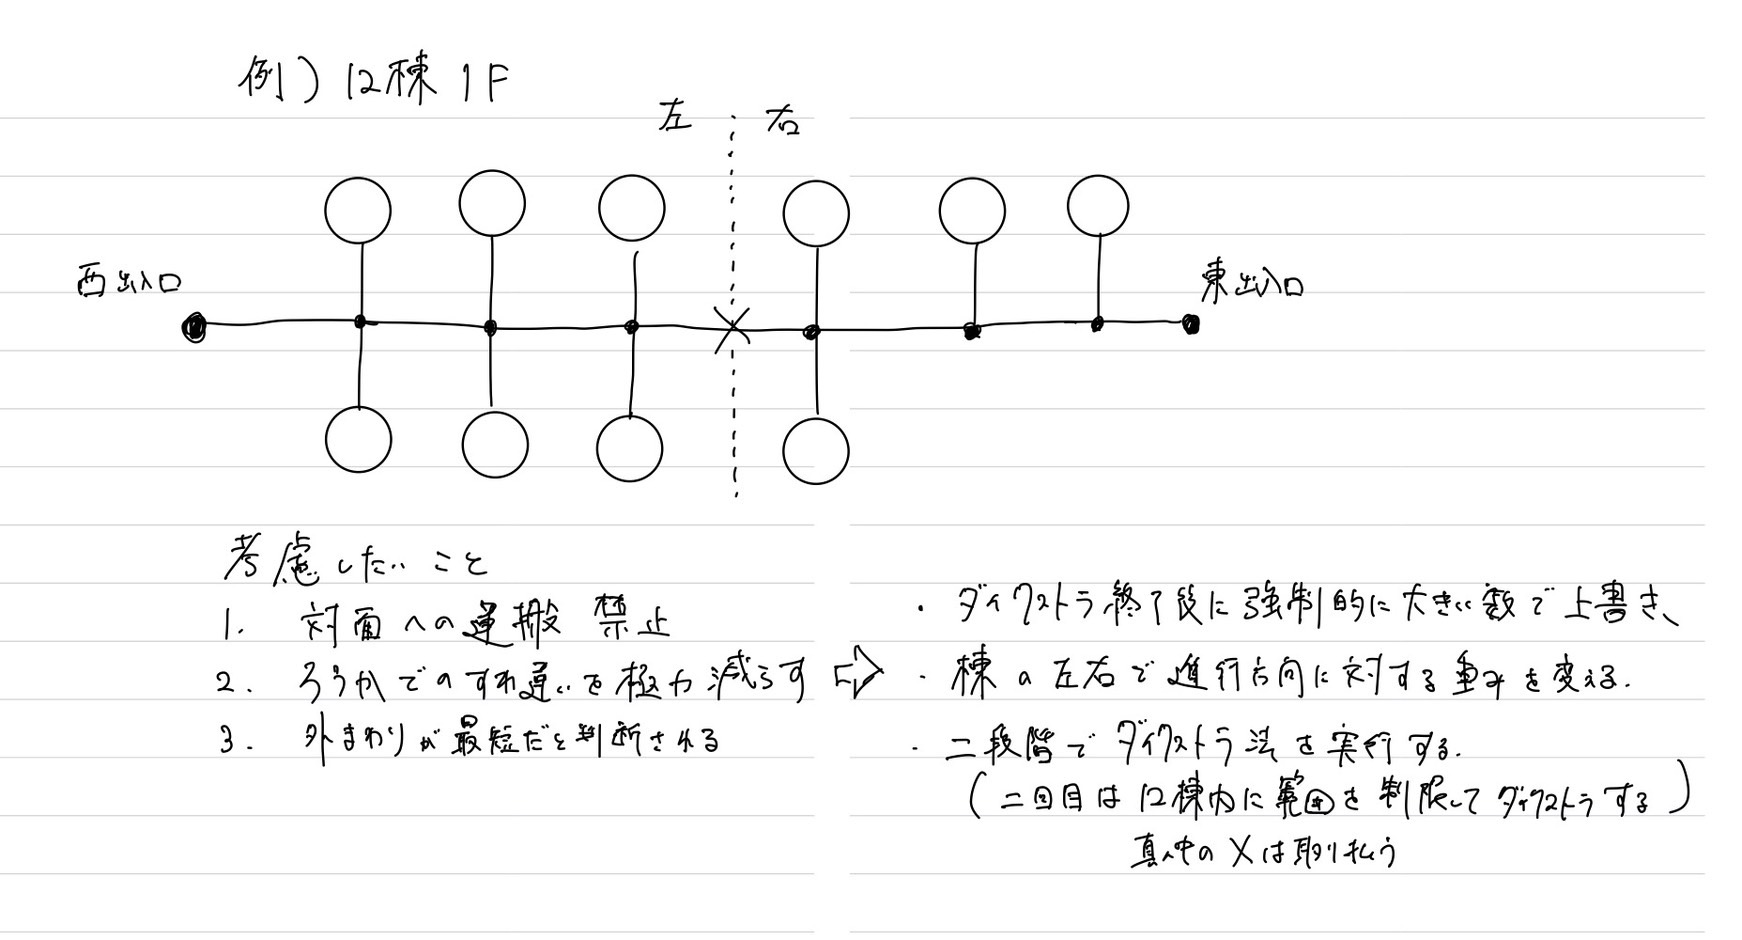 例) 12棟 1F
左 右
西出入口
東出入口
考慮したいこと
1. 対面への運搬 禁止
2. ろうかでのすれ違いを極力減らす
3. 外まわりが最短だと判断される
・ダイクストラ終了後に強制的に大きい数で上書き、
・棟の左右で進行方向に対する重みを変える.
・二段階でダイクストラ法を実行する.
(二回目は12棟内に範囲を制限してダイクストラする)
真ん中の×は取り払う